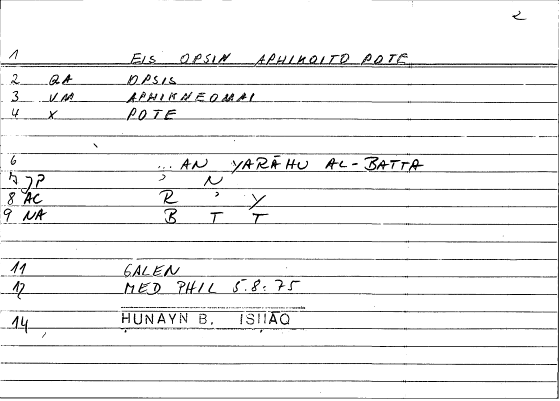 2
1 EIS OPSIN APHIKOITO POTE
2 QA OPSIS
3 VM APHIKNEOMAI
4 X POTE
6 ... AN YARĀHU AL-BATTA
7 JP ' N
8 AC R ' Y
9 NA B T T
11 GALEN
12 MED PHIL 5.8.75
14 HUNAYN B. ISHĀQ